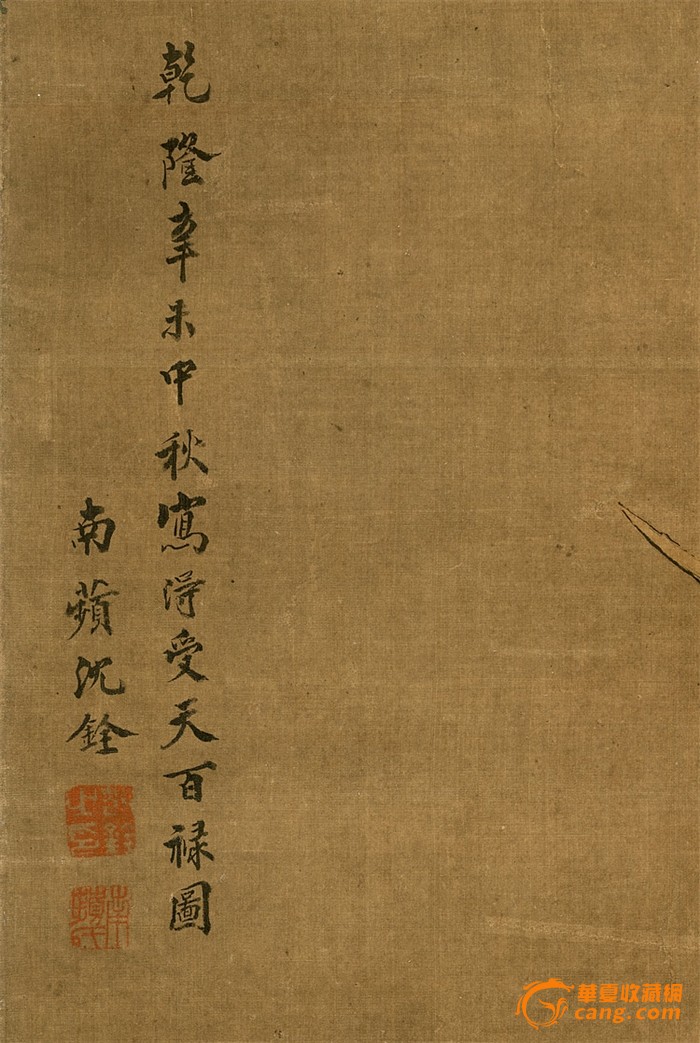 乾隆辛未中秋寫得受天百祿圖
南蘋沈銓
華夏收藏網
cang.com